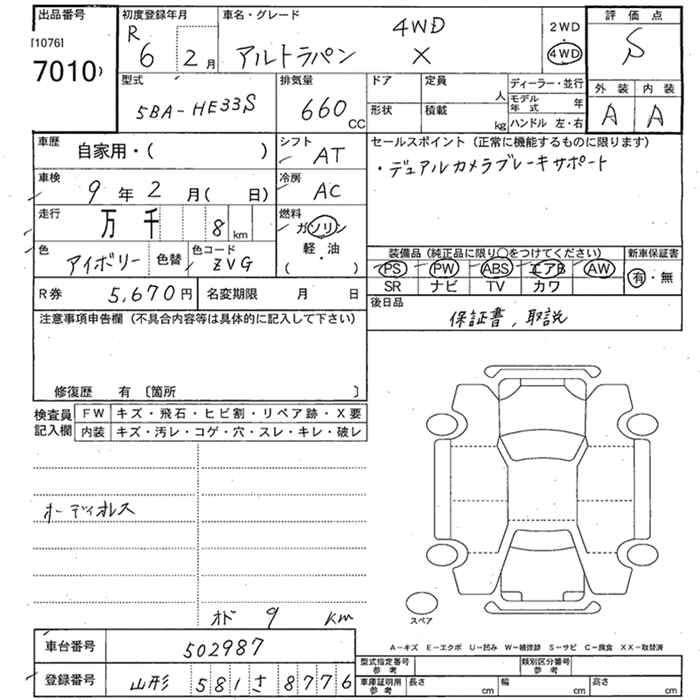 出品番号 初度登録年月 車名・グレード 4WD 2WD・4WD 評価点
[1076] R 6 2月 アルトラパン X S
7010
型式 排気量 ドア 定員 人 ディーラー・並行 外装 内装
5BA-HE33S 660 CC 形状 積載 kg モデル年式 年 A A
ハンドル 左・右
車歴 自家用・( ) シフト AT セールスポイント (正常に機能するものに限ります)
・デュアルカメラブレーキサポート
車検 9年2月( 日) 冷房 AC
走行 万 千 8 km 燃料 ガソリン・軽・油 ( )
色 アイボリー 色替 色コード ZVG 装備品 (純正品に限り○をつけてください) 新車保証書
PS PW ABS エアB AW 有・無
SR ナビ TV カワ
R券 5,670円 名変期限 月 日 後日品
保証書,取説
注意事項申告欄 (不具合内容等は具体的に記入して下さい)
修復歴 有 〔箇所 〕
検査員記入欄 FW キズ・飛石・ヒビ割・リペア跡・X要
内装 キズ・汚レ・コゲ・穴・スレ・キレ・破レ
オーディオレス
オド 9 km
スペア
A−キズ E−エクボ U−凹み W−補修跡 S−サビ C−腐食 XX−取替済
車台番号 502987
型式指定番号 参考 類別区分番号 参考
登録番号 山形 581 さ 8776 車庫証明用 参考 長さ cm 幅 cm 高さ cm